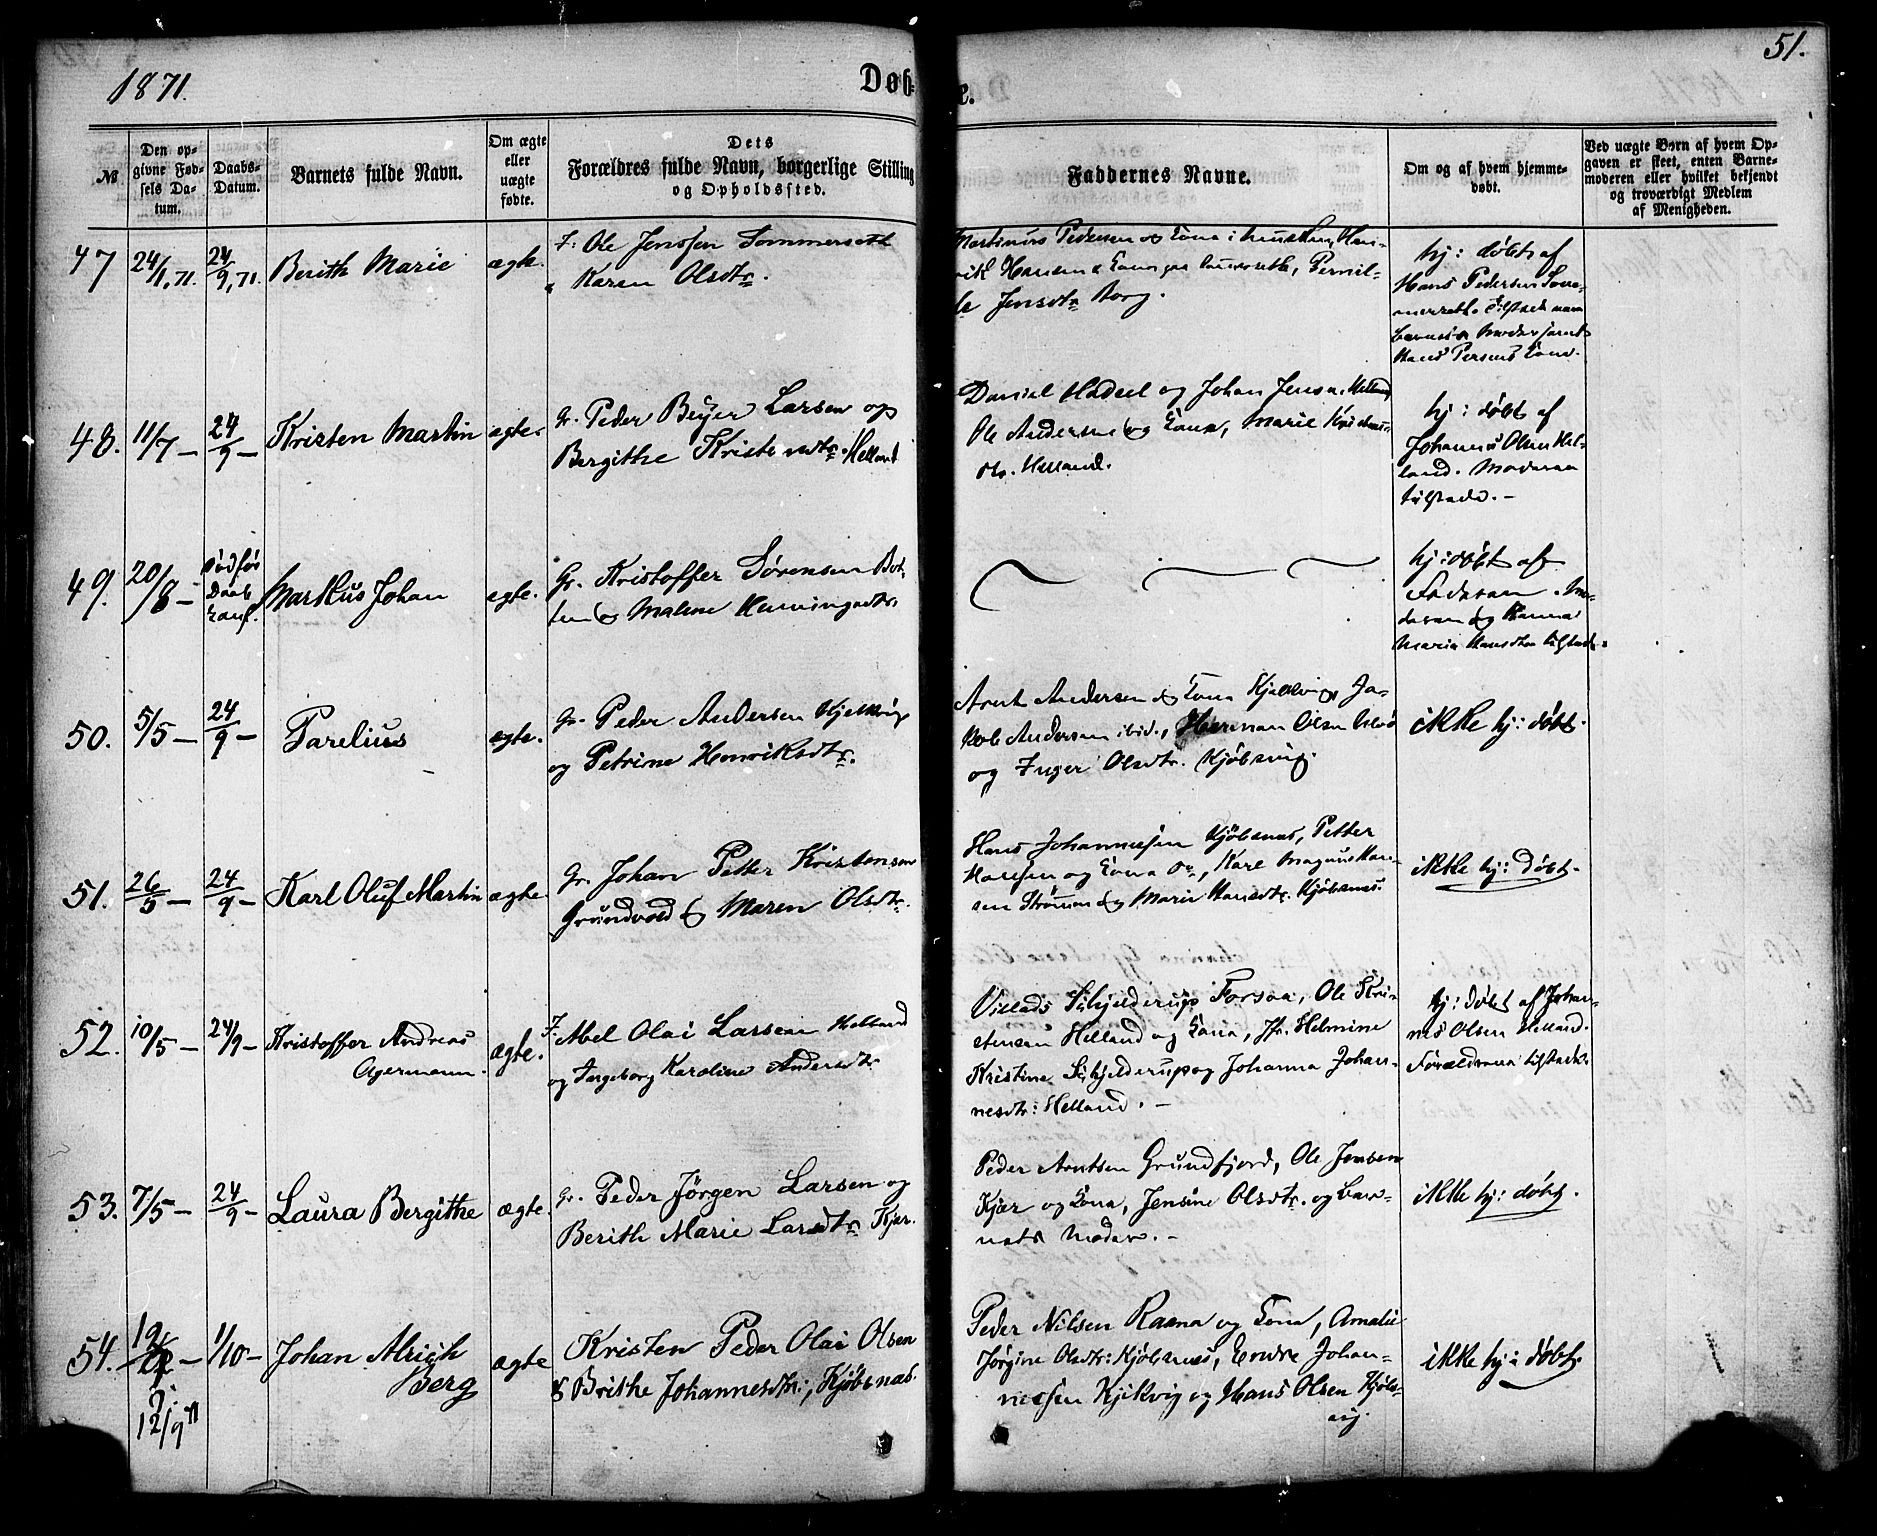 1871.
Døb-
e.
51.
№
Den op-
givne Fød-
sels Da-
tum.
Daabs-
Datum.
Barnets fulde Navn.
Om ægte
eller
uægte
fødte.
Dets
Forældres fulde Navn, borgerlige Stilling
og Opholdssted.
Faddernes Navne.
Om og af hvem hjemme-
døbt.
Ved uægte Børn af hvem Op-
gaven er skeet, enten Barne-
moderen eller hvilket bekjendt
og troværdigt Medlem
af Menigheden.
47 24/1, 71. 24/9, 71. Berith Marie ægte.
F: Ole Jenssen Sommerseth
Karen Olsdtr.
Martinus Pedersen og Kona
Hansen Kona Pernil-
le Jensdtr Borg.
hj: døbt af
Hans Pedersen Som-
merseth. Tilstede
Barnets Moder samt
Hans Persens Kone.
48. 11/7 – 24/9 – Kristen Martin ægte.
Gr. Peder Beÿer Larsen og
Bergithe Kristensdtr. Helland
Daniel Hadsel og Johan Jensen Helland
Ole Andersen og Kona, Marie
Helland.
hj: døbt af
Johannes Olsen Hel-
land. Moderen
tilstede. –
49. 20/8 – død før Daab Markus Johan ægte.
Gr. Kristoffer Sørensen Bot-
ten og Malene Henningsdtr.
hj: døbt af
Faderen. Mo-
deren og Hanna
Maria Hansdtr tilstede.
50. 5/5 – 24/9 – Parelius ægte.
Gr. Peder Andersen Kjelkvig
og Petrine Henriksdtr.
Arnt Andersen og Kona Kjelkvig, Ja-
kob Andersen ibid., Herman Olsen
og Inger Olsdtr. Kjøbsvig.
ikke hj: døbt.
51. 26/5 – 24/9 – Karl Oluf Martin ægte
Gr. Johan Petter Kristensen
Grundvold og Maren Olsdtr.
Hans Johannesen Kjøbsnæs, Petter
Hansen og Kona Karl Magnus Han-
sen Strømen og Marie Hansdtr. Kjøbsnæs.
ikke hj: døbt.
52. 10/5 – 24/9 – Kristoffer Andreas
Agermann. ægte.
F: Abel Olai Larsen Helland
og Ingeborg Karoline Andersdtr
Villads Schjelderup Forsaa, Ole Kri-
stensen Helland og Kona, Jfr. Helmine
Kristine Schjelderup og Johanna Johan-
nesdtr: Helland. –
hj: døbt af Johan-
nes Olsen Helland.
Forældrene tilstede.
53. 7/5 – 24/9 – Laura Bergithe ægte
Gr. Peder Jørgen Larsen og
Berith Marie Larsdtr Kjær.
Peder Arntsen Grundfjord, Ole Jensen
Kjær og Kona, Jensine Olsdtr. og Bar-
nets Moder. –
ikke hj: døbt.
54. – 1/10 – Johan Alrich
Berg ægte
12/9 71
Kristen Peder Olai Olsen
& Brithe Johannesdtr:, Kjøbsnæs.
Peder Nilsen Raana og Kona, Amalie
Jørgine Olsdtr: Kjøbsnæs, Endre Johan-
nessen Kjelkvig og Hans Olsen Kjøbs-
vig.
ikke hj: døbt.